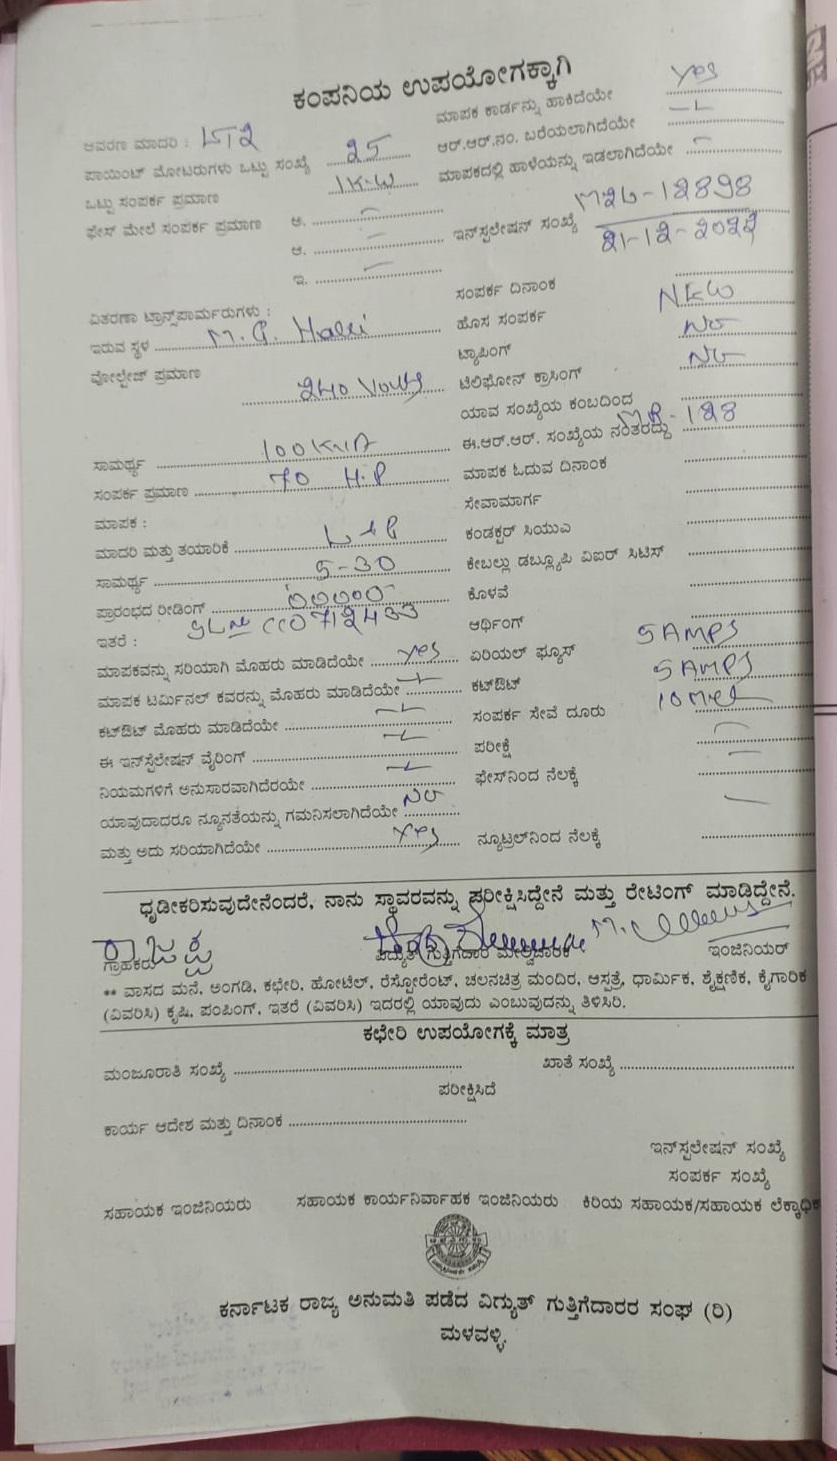 ಕಂಪನಿಯ ಉಪಯೋಗಕ್ಕಾಗಿ
ಆವರಣ ಮಾದರಿ : LT2
ಪಾಯಿಂಟ್ ಮೋಟರುಗಳು ಒಟ್ಟು ಸಂಖ್ಯೆ 25
ಒಟ್ಟು ಸಂಪರ್ಕ ಪ್ರಮಾಣ 1K.W
ಫೇಸ್ ಮೇಲೆ ಸಂಪರ್ಕ ಪ್ರಮಾಣ ಅ.
ಆ.
ಇ.
ವಿತರಣಾ ಟ್ರಾನ್ಸ್‌ಪಾರ್ಮರುಗಳು :
ಇರುವ ಸ್ಥಳ M.G. Halli
ವೋಲ್ಟೇಜ್ ಪ್ರಮಾಣ
240 Volts
ಸಾಮರ್ಥ್ಯ 100 KVA
ಸಂಪರ್ಕ ಪ್ರಮಾಣ 70 H.P
ಮಾಪಕ :
ಮಾದರಿ ಮತ್ತು ತಯಾರಿಕೆ L+G
ಸಾಮರ್ಥ್ಯ 5-30
ಪ್ರಾರಂಭದ ರೀಡಿಂಗ್ 00000
ಇತರೆ : SL No
ಮಾಪಕವನ್ನು ಸರಿಯಾಗಿ ಮೊಹರು ಮಾಡಿದೆಯೇ yes
ಮಾಪಕ ಟರ್ಮಿನಲ್ ಕವರನ್ನು ಮೊಹರು ಮಾಡಿದೆಯೇ
ಕಟ್‌ಔಟ್ ಮೊಹರು ಮಾಡಿದೆಯೇ
ಈ ಇನ್‌ಸ್ಟಲೇಷನ್ ವೈರಿಂಗ್
ನಿಯಮಗಳಿಗೆ ಅನುಸಾರವಾಗಿದೆರಯೇ
ಯಾವುದಾದರೂ ನ್ಯೂನತೆಯನ್ನು ಗಮನಿಸಲಾಗಿದೆಯೇ No
ಮತ್ತು ಅದು ಸರಿಯಾಗಿದೆಯೇ Yes
ಮಾಪಕ ಕಾರ್ಡನ್ನು ಹಾಕಿದೆಯೇ Yes
ಆರ್.ಆರ್.ನಂ. ಬರೆಯಲಾಗಿದೆಯೇ
ಮಾಪಕದಲ್ಲಿ ಹಾಳೆಯನ್ನು ಇಡಲಾಗಿದೆಯೇ
ಇನ್‌ಸ್ಟಲೇಷನ್ ಸಂಖ್ಯೆ
ಸಂಪರ್ಕ ದಿನಾಂಕ
ಹೊಸ ಸಂಪರ್ಕ NEW
ಟ್ಯಾಪಿಂಗ್ No
ಟೆಲಿಫೋನ್ ಕ್ರಾಸಿಂಗ್ No
ಯಾವ ಸಂಖ್ಯೆಯ ಕಂಬದಿಂದ
ಈ.ಆರ್.ಆರ್. ಸಂಖ್ಯೆಯ ನಂತರದ್ದು MR-123
ಮಾಪಕ ಓದುವ ದಿನಾಂಕ
ಸೇವಾಮಾರ್ಗ
ಕಂಡಕ್ಟರ್ ಸಿಯುಎ
ಕೇಬಲ್ಲು ಡಬ್ಲ್ಯೂಪಿ ವಿಐರ್ ಸಿಟಿಸ್
ಕೊಳವೆ
ಆರ್ಥಿಂಗ್
ಏರಿಯಲ್ ಫ್ಯೂಸ್ 5 AMPS
ಕಟ್‌ಔಟ್ 5 AMPS
ಸಂಪರ್ಕ ಸೇವೆ ದೂರು
ಪರೀಕ್ಷೆ
ಫೇಸ್‌ನಿಂದ ನೆಲಕ್ಕೆ
ನ್ಯೂಟ್ರಲ್‌ನಿಂದ ನೆಲಕ್ಕೆ
ಧೃಡೀಕರಿಸುವುದೇನೆಂದರೆ, ನಾನು ಸ್ಥಾವರವನ್ನು ಪರೀಕ್ಷಿಸಿದ್ದೇನೆ ಮತ್ತು ರೇಟಿಂಗ್ ಮಾಡಿದ್ದೇನೆ.
ಗ್ರಾಹಕರು ವಿದ್ಯುತ್ ಗುತ್ತಿಗೆದಾರ ಮೇಲ್ವಿಚಾರಕ ಇಂಜಿನಿಯರ್
** ವಾಸದ ಮನೆ, ಅಂಗಡಿ, ಕಛೇರಿ, ಹೋಟೆಲ್, ರೆಸ್ಟೋರೆಂಟ್, ಚಲನಚಿತ್ರ ಮಂದಿರ, ಆಸ್ಪತ್ರೆ, ಧಾರ್ಮಿಕ, ಶೈಕ್ಷಣಿಕ, ಕೈಗಾರಿಕ
(ವಿವರಿಸಿ) ಕೃಷಿ, ಪಂಪಿಂಗ್, ಇತರೆ (ವಿವರಿಸಿ) ಇದರಲ್ಲಿ ಯಾವುದು ಎಂಬುವುದನ್ನು ತಿಳಿಸಿರಿ.
ಕಛೇರಿ ಉಪಯೋಗಕ್ಕೆ ಮಾತ್ರ
ಮಂಜೂರಾತಿ ಸಂಖ್ಯೆ ಖಾತೆ ಸಂಖ್ಯೆ
ಪರೀಕ್ಷಿಸಿದೆ
ಕಾರ್ಯ ಆದೇಶ ಮತ್ತು ದಿನಾಂಕ
ಇನ್‌ಸ್ಟಲೇಷನ್ ಸಂಖ್ಯೆ
ಸಂಪರ್ಕ ಸಂಖ್ಯೆ
ಸಹಾಯಕ ಇಂಜಿನಿಯರು ಸಹಾಯಕ ಕಾರ್ಯನಿರ್ವಾಹಕ ಇಂಜಿನಿಯರು ಕಿರಿಯ ಸಹಾಯಕ/ಸಹಾಯಕ
ಕರ್ನಾಟಕ ರಾಜ್ಯ ಅನುಮತಿ ಪಡೆದ ವಿದ್ಯುತ್ ಗುತ್ತಿಗೆದಾರರ ಸಂಘ (ರಿ)
ಮಳವಳ್ಳಿ.